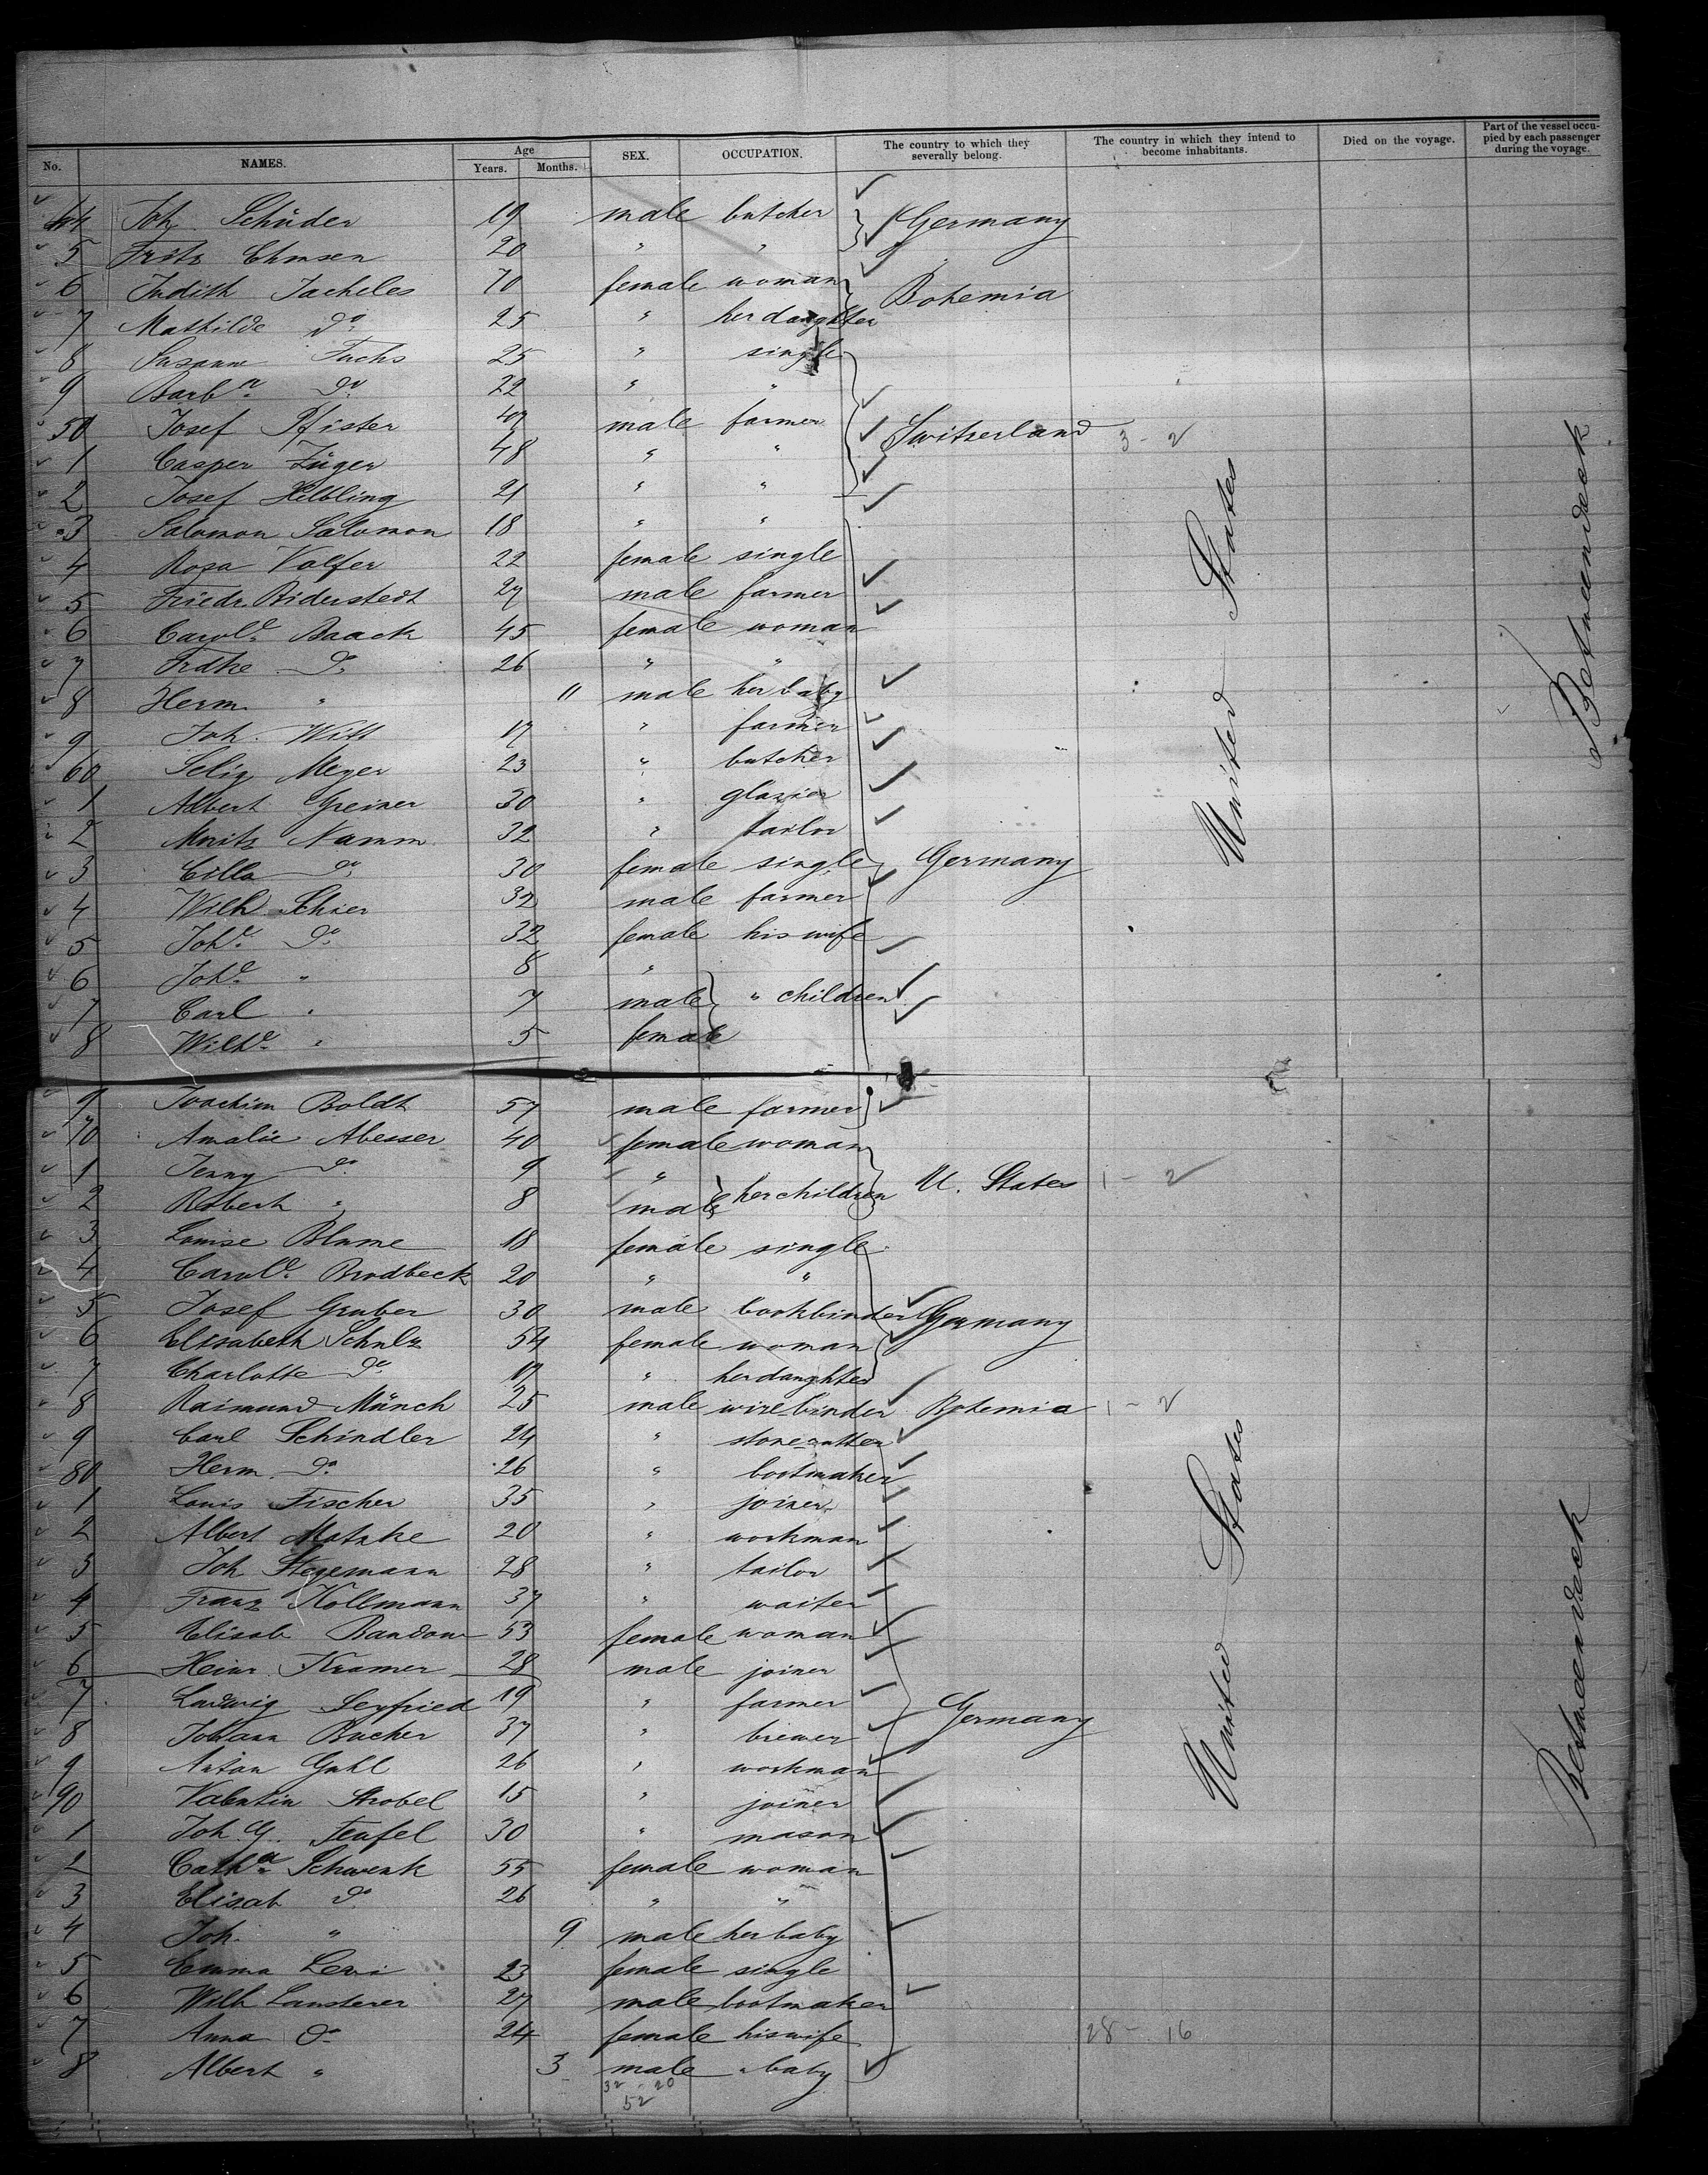 No. NAMES. Age Years. Months. SEX. OCCUPATION. The country to which they severally belong. The country in which they intend to become inhabitants. Died on the voyage. Part of the vessel occupied by each passenger during the voyage.
44 Joh. Schüder 19 male butcher Germany
5 Fritz 20 " "
6 Judith Jacheles 70 female woman Bohemia
7 Mathilde do 25 " her daughter
8 Susann Fuchs 25 " single
9 Barba do 22 " "
50 Josef Pfister 47 male farmer Switzerland 3 - 2
1 Casper Züger 48 " "
2 Josef Helbling 21 " "
3 Salomon Salomon 18 " "
4 Rosa Volfer 22 female single
5 Friedr. Biderstedt 27 male farmer
6 Carole Baack 45 female woman
7 Frdke do 26 " "
8 Herm. " 11 male her baby
9 Joh. Witt 17 " farmer
60 Selig Meyer 23 " butcher
1 Albert Greiner 30 " glazier
2 Moritz Namm 32 " tailor
3 Cilla do 30 female single Germany
4 Wilh. Schier 32 male farmer
5 Johe do 32 female his wife
6 Johe " 8 "
7 Carl " 7 male " children
8 Wilhe " 5 female
United States
Between deck
9 Joachim Boldt 57 male farmer
70 Amalie Abesser 40 female woman
1 Jenny do 9 " her children U. States 1 - 2
2 Robert " 8 male
3 Louise Blume 18 female single
4 Carole Brodbeck 20 " "
5 Josef Gruber 30 male bookbinder Germany
6 Elisabeth Schulz 54 female woman
7 Charlotte do 17 " her daughter
8 Raimund Münch 25 male wire-binder Bohemia 1 - 2
9 Carl Schindler 24 " stone-cutter
80 Herm. do 26 " bootmaker
1 Louis Fischer 35 " joiner
2 Albert Matzke 20 " workman
3 Joh Stegemann 28 " tailor
4 Franz Kollmann 37 " waiter
5 Elisab Bandow 53 female woman
6 Heinr. Kramer 28 male joiner
7 Ludwig Seyfried 19 " farmer Germany
8 Johann Bucher 37 " brewer
9 Anton Guhl 26 " workman
90 Valentin Strobel 15 " joiner
1 Joh. G. Teufel 30 " mason
2 Catha Schwenk 55 female woman
3 Elisab do 26 " "
4 Joh. " 9 male her baby
5 Emma Levi 23 female single
6 Wilh Lansterer 27 male bootmaker
7 Anna do 24 female his wife 28 - 16
8 Albert " 3 male " baby
32 - 20
52
United States
Between deck